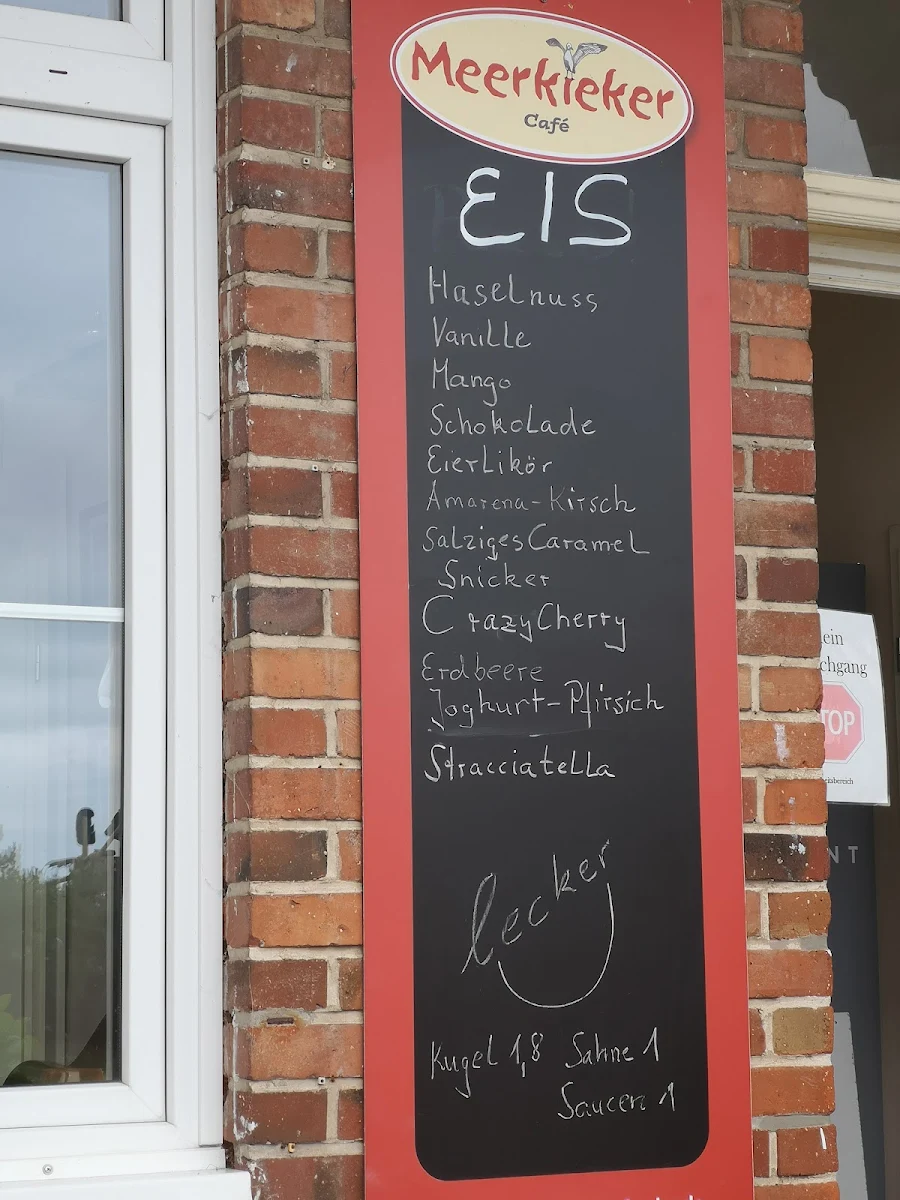 Meerkieker
Café
EIS
Haselnuss
Vanille
Mango
Schokolade
Eierlikör
Amarena-Kirsch
Salziges Caramel
Snicker
Crazy Cherry
Erdbeere
Joghurt-Pfirsich
Stracciatella
lecker
Kugel 1,8 Sahne 1
Saucen 1
ein
chgang
TOP
NT